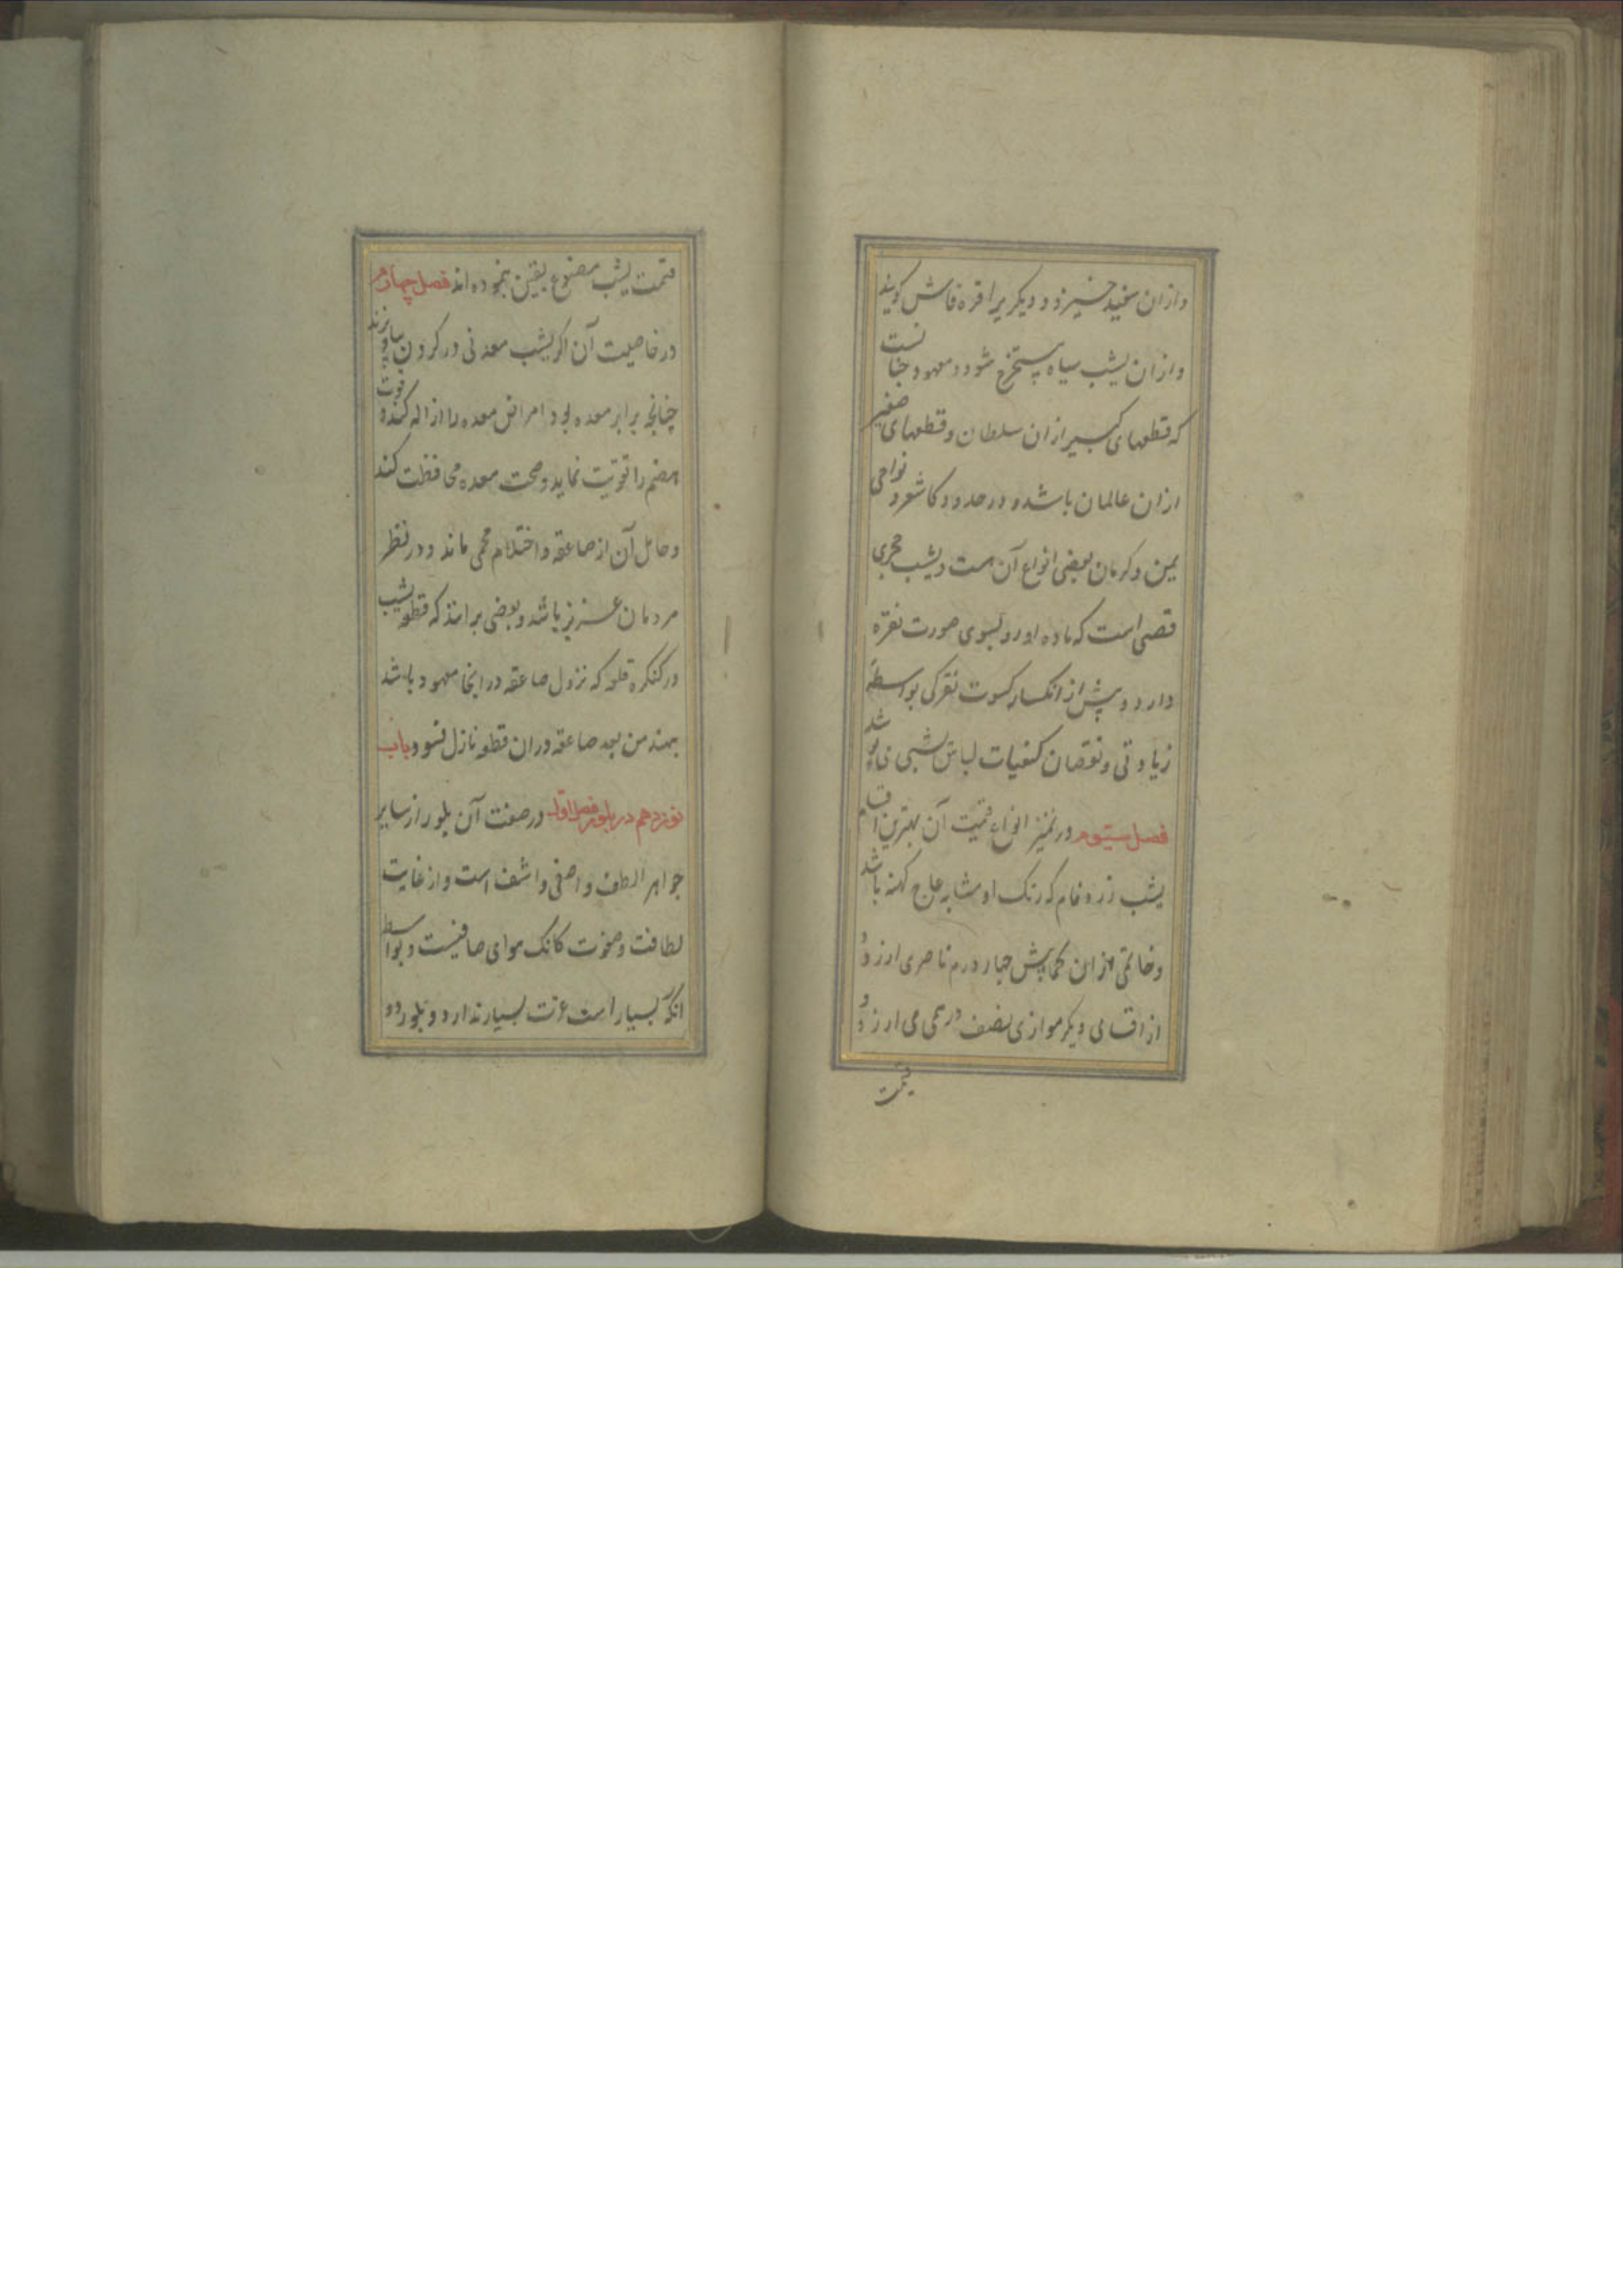 وازان سفید خیزد و دیکریرا قره قاش کویند
وازان یشب سیاه مستخرج شود و معهود چنانست
که قطعهای کبیر ازان سلطان و قطعهای صغیر
ازان عالمان باشد و در حدود کاشغر و نواحی
یمن و کرمان بعضی انواع آن هست و یشب حجری
است که ماده او رو بسوی صورت نقره
دارد و پیش از انکسار کسوت نقرکی بواسطه
زیادتی و نقصان کیفیات لباس یشبی
فصل سیّوم در تمیز انواع و قیمت آن بهترین اقسام
یشب زرد فام که رنک او مشابه عاج کهنه باشد
و خاتمی ازان کمابیش چهار درم ناصری ارزد و
از اقسامی دیکر موازی نصف درمی می ارزد و
قیمت
قیمت یشب مصنوع تعیین ننموده اند فصل چهارم
در خاصیت آن اکر یشب معدنی در کردن بیاویزند
چنانچه برابر معده بود امراض معده را ازاله کند و قوت
هضم را تقویت نماید و صحت معده محافظت کند
و حامل آن از صاعقه و احتلام محمی ماند و در نظر
مردمان عزیز باشد و بعضی برانند که قطعه یشب
در کنکره قلعه که نزول صاعقه در انجا معهود باشد
بنهند من بعد صاعقه دران قطعه نازل نشود باب
نوزدهم در بلور فصل اول در صفت آن بلور از سایر
جواهر الطف و اصفی و اشف است و از غایت
لطافت و صفوت کانک هوای صافیست و بواسطه
انکه بسیار است عزت بسیار ندارد و بلور دو